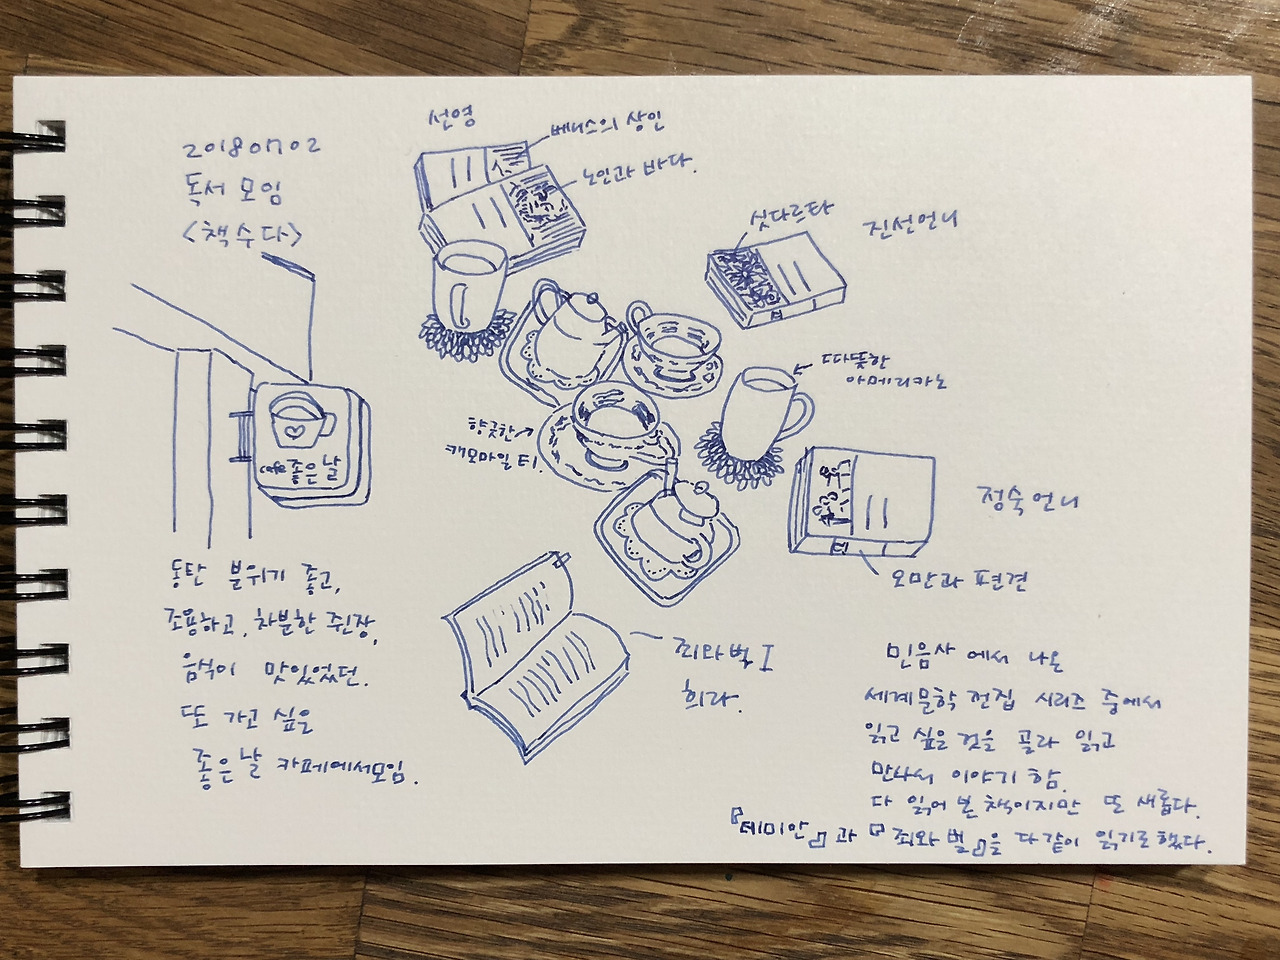 20180702
독서 모임
<책수다>
선영
베니스의 상인
노인과 바다.
싯다르타
진선언니
따뜻한
아메리카노
향긋한
캐모마일 티.
cafe 좋은 날
정숙언니
오만과 편견
죄와벌 I
희라.
동탄 분위기 좋고,
조용하고, 차분한 쥔장,
음식이 맛있었던.
또 가고 싶은
좋은날 카페에서모임.
민음사 에서 나온
세계문학 전집 시리즈 중에서
읽고 싶은 것을 골라 읽고
만나서 이야기 함.
다 읽어 본 책이지만 또 새롭다.
『데미안』과 『죄와 벌』을 다같이 읽기로 했다.